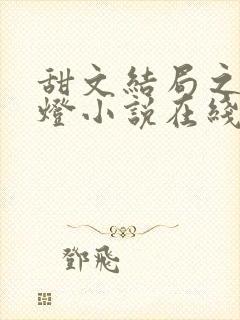 甜文結局之
燈小説在綫
鄧飛